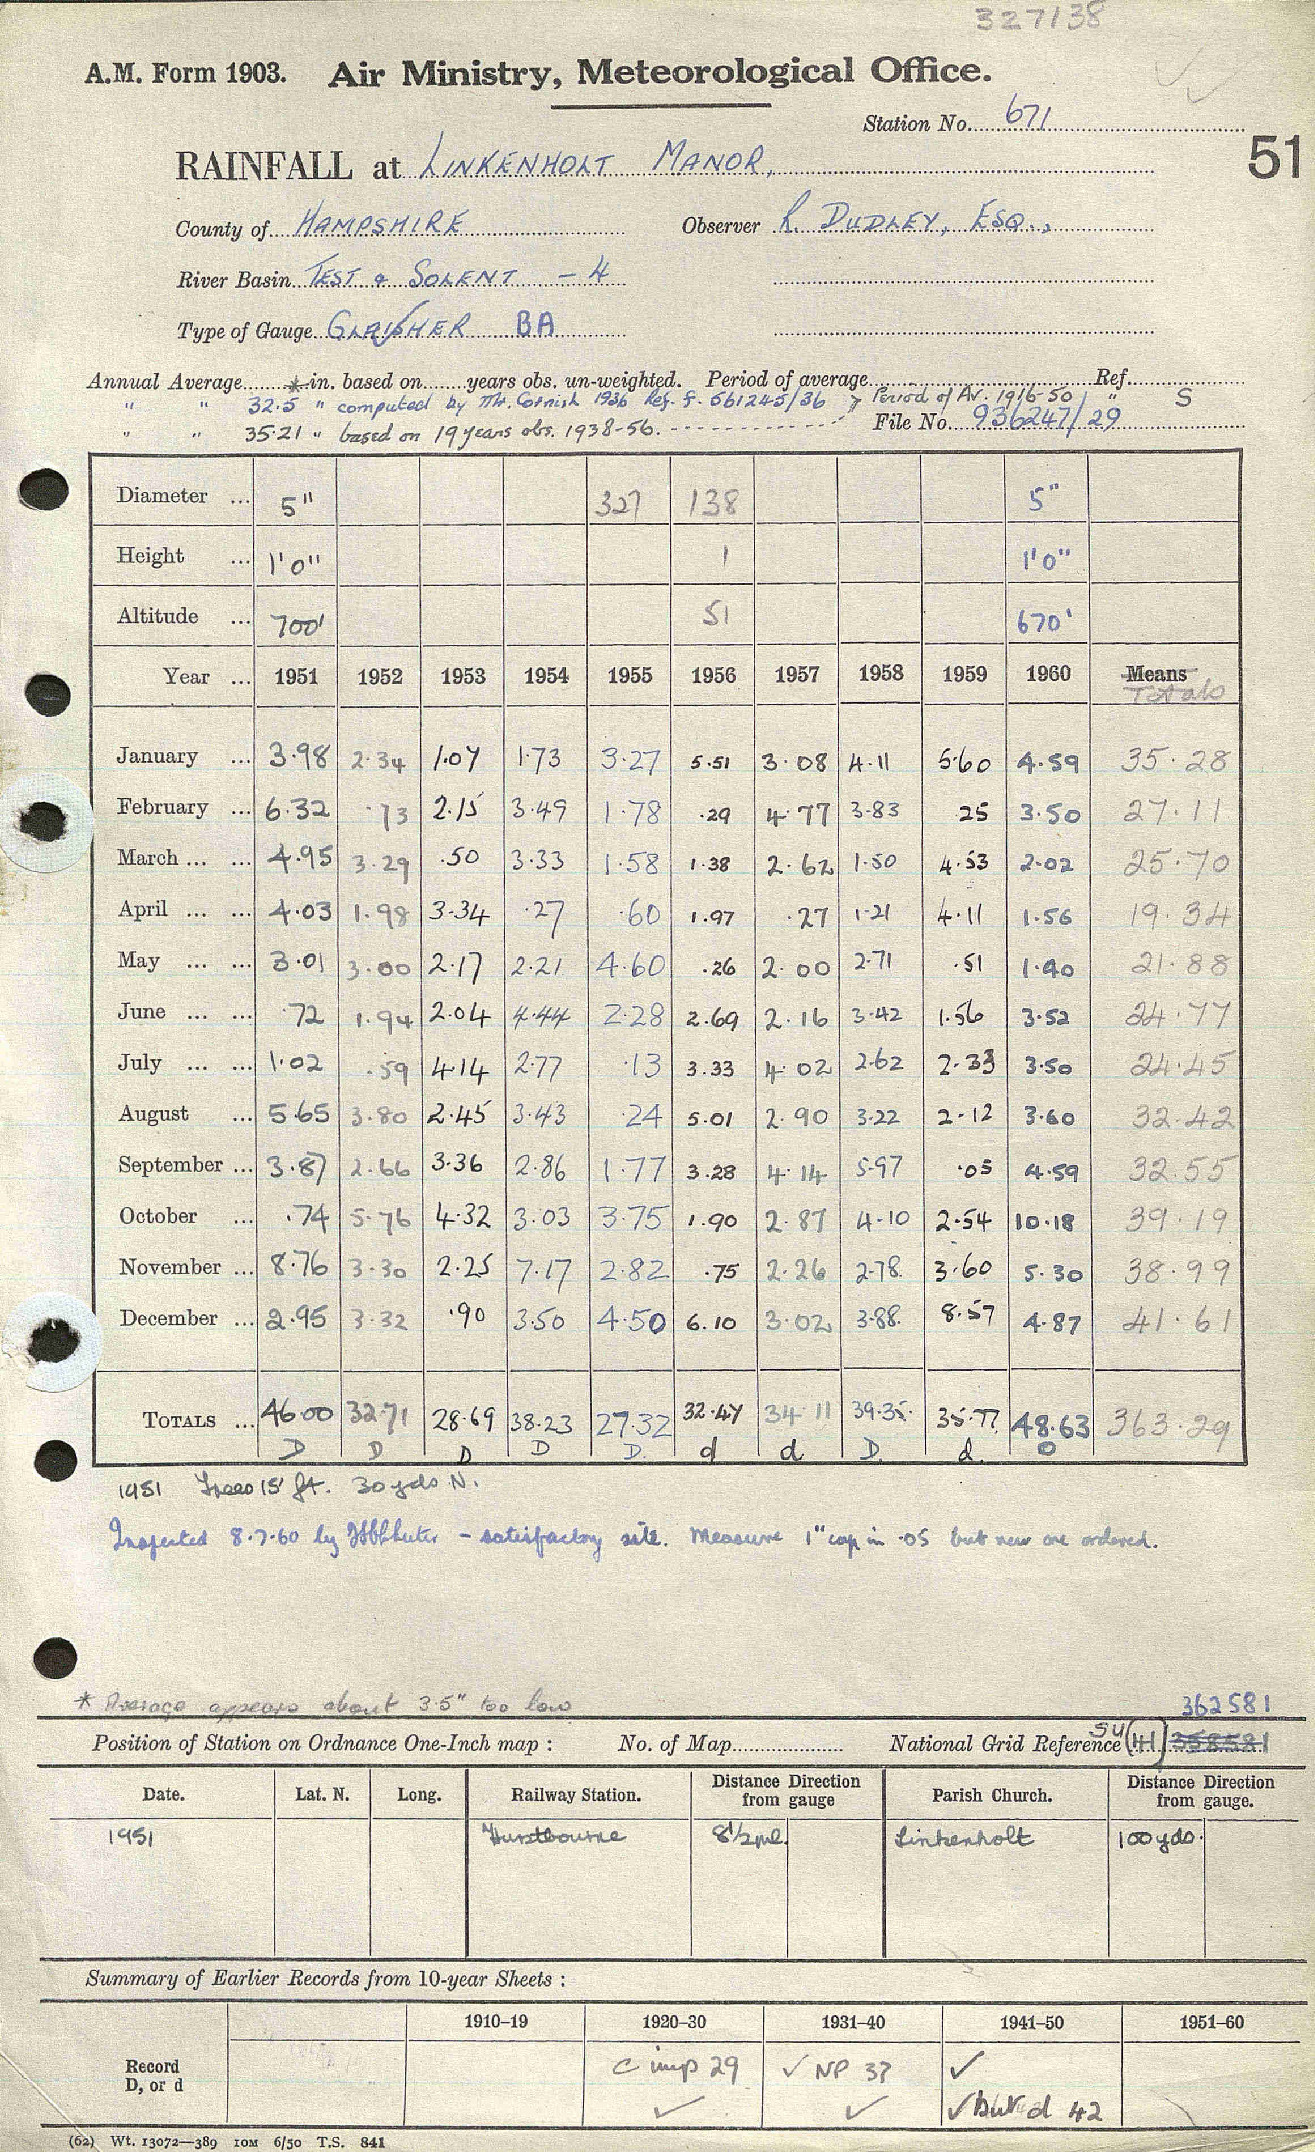 327138
A.M. Form 1903. Air Ministry, Meteorological Office.
Station No. 671
51
RAINFALL at LINKENHOLT MANOR,
County of HAMPSHIRE Observer R. DUDLEY, ESQ.,
River Basin TEST & SOLENT - 4
Type of Gauge GLAISHER BA
Annual Average * in. based on years obs. un-weighted. Period of average Ref.
" " 32.5 " computed by Mr. Cornish 1936 Ref. f. 561245/36 Period of Av. 1916-50 " S
" " 35.21 " based on 19 years obs. 1938-56. File No. 936247/29
Diameter ... 5" 327 138 5"
Height ... 1'0" 1 1'0"
Altitude ... 700' 51 670'
Year ... 1951 1952 1953 1954 1955 1956 1957 1958 1959 1960 Means
Totals
January ... 3.98 2.34 1.07 1.73 3.27 5.51 3.08 4.11 5.60 4.59 35.28
February ... 6.32 .73 2.15 3.49 1.78 .29 4.77 3.83 .25 3.50 27.11
March ... ... 4.95 3.29 .50 3.33 1.58 1.38 2.62 1.50 4.53 2.02 25.70
April ... ... 4.03 1.98 3.34 .27 .60 1.97 .27 1.21 4.11 1.56 19.34
May ... ... 3.01 3.00 2.17 2.21 4.60 .26 2.00 2.71 .51 1.40 21.88
June ... ... .72 1.94 2.04 4.44 2.28 2.69 2.16 3.42 1.56 3.52 24.77
July ... ... 1.02 .59 4.14 2.77 .13 3.33 4.02 2.62 2.33 3.50 24.45
August ... 5.65 3.80 2.45 3.43 .24 5.01 2.90 3.22 2.12 3.60 32.42
September ... 3.87 2.66 3.36 2.86 1.77 3.28 4.14 5.97 .05 4.59 32.55
October ... .74 5.76 4.32 3.03 3.75 1.90 2.87 4.10 2.54 10.18 39.19
November ... 8.76 3.30 2.25 7.17 2.82 .75 2.26 2.78 3.60 5.30 38.99
December ... 2.95 3.32 .90 3.50 4.50 6.10 3.02 3.88 8.57 4.87 41.61
TOTALS ... 46.00 32.71 28.69 38.23 27.32 32.47 34.11 39.35 35.77 48.63 363.29
D D D D D d d D d D
1951 Trees 15 ft. 30 yds N.
Inspected 8.7.60 by - satisfactory site. Measure 1" cap in .05 but new one ordered.
* Average appears about 3.5" too low
362581
Position of Station on Ordnance One-Inch map : No. of Map National Grid Reference SU (41) 358581
Date. Lat. N. Long. Railway Station. Distance Direction from gauge Parish Church. Distance Direction from gauge.
1951 Hurstbourne 8½ ml. Linkenholt 100 yds.
Summary of Earlier Records from 10-year Sheets :
1910–19 1920–30 1931–40 1941–50 1951–60
Record D, or d C imp 29 ✓ NP 37 ✓
✓ ✓ ✓ but d 42
(62) Wt. 13072—389 10M 6/50 T.S. 841